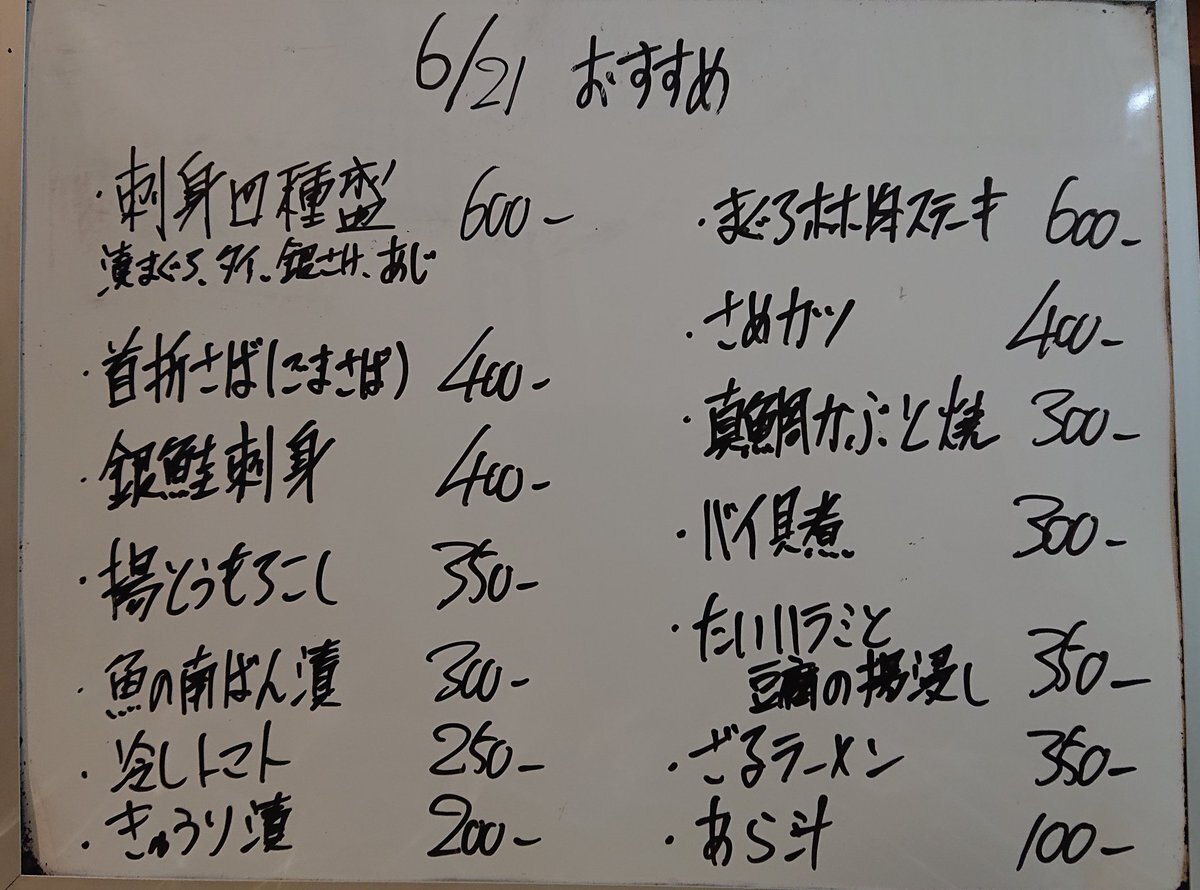 6/21 おすすめ
・刺身四種盛 600-
漬まぐろ、タイ、銀さけ、あじ
・首折さば(ごまさば) 400-
・銀鮭刺身 400-
・揚とうもろこし 350-
・魚の南ばん漬 300-
・冷しトマト 250-
・きゅうり漬 200-
・まぐろホホ肉ステーキ 600-
・さめカツ 400-
・真鯛かぶと焼 300-
・バイ貝煮 300-
・たいハラミと
豆腐の揚浸し 350-
・ざるラーメン 350-
・あら汁 100-